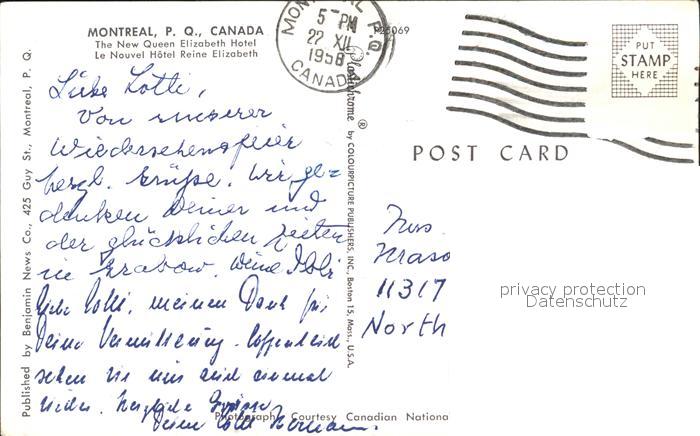 MONTREAL, P. Q., CANADA
The New Queen Elizabeth Hotel
Le Nouvel Hôtel Reine Elizabeth
Liebe Lotti,
Von unserer
Wiedersehensfeier
herzl. Grüße. Wir ge=
denken Deiner und
der glücklichen Zeiten
in Grabow. Deine
liebe Lotti, meinen Dank für
Deine Vermittlung. Hoffentlich
sehen wir uns einmal
wieder. Herzliche Grüsse
Photography Courtesy Canadian National
Published by Benjamin News Co., 425 Guy St., Montreal, P. Q.
Plastichrome ® by COLOURPICTURE PUBLISHERS, INC., Boston 15, Mass., U.S.A.
MONTREAL P.Q.
5 PM
22 XII
1958
CANADA
P25069
PUT
STAMP
HERE
POST CARD
11317
North
privacy protection
Datenschutz